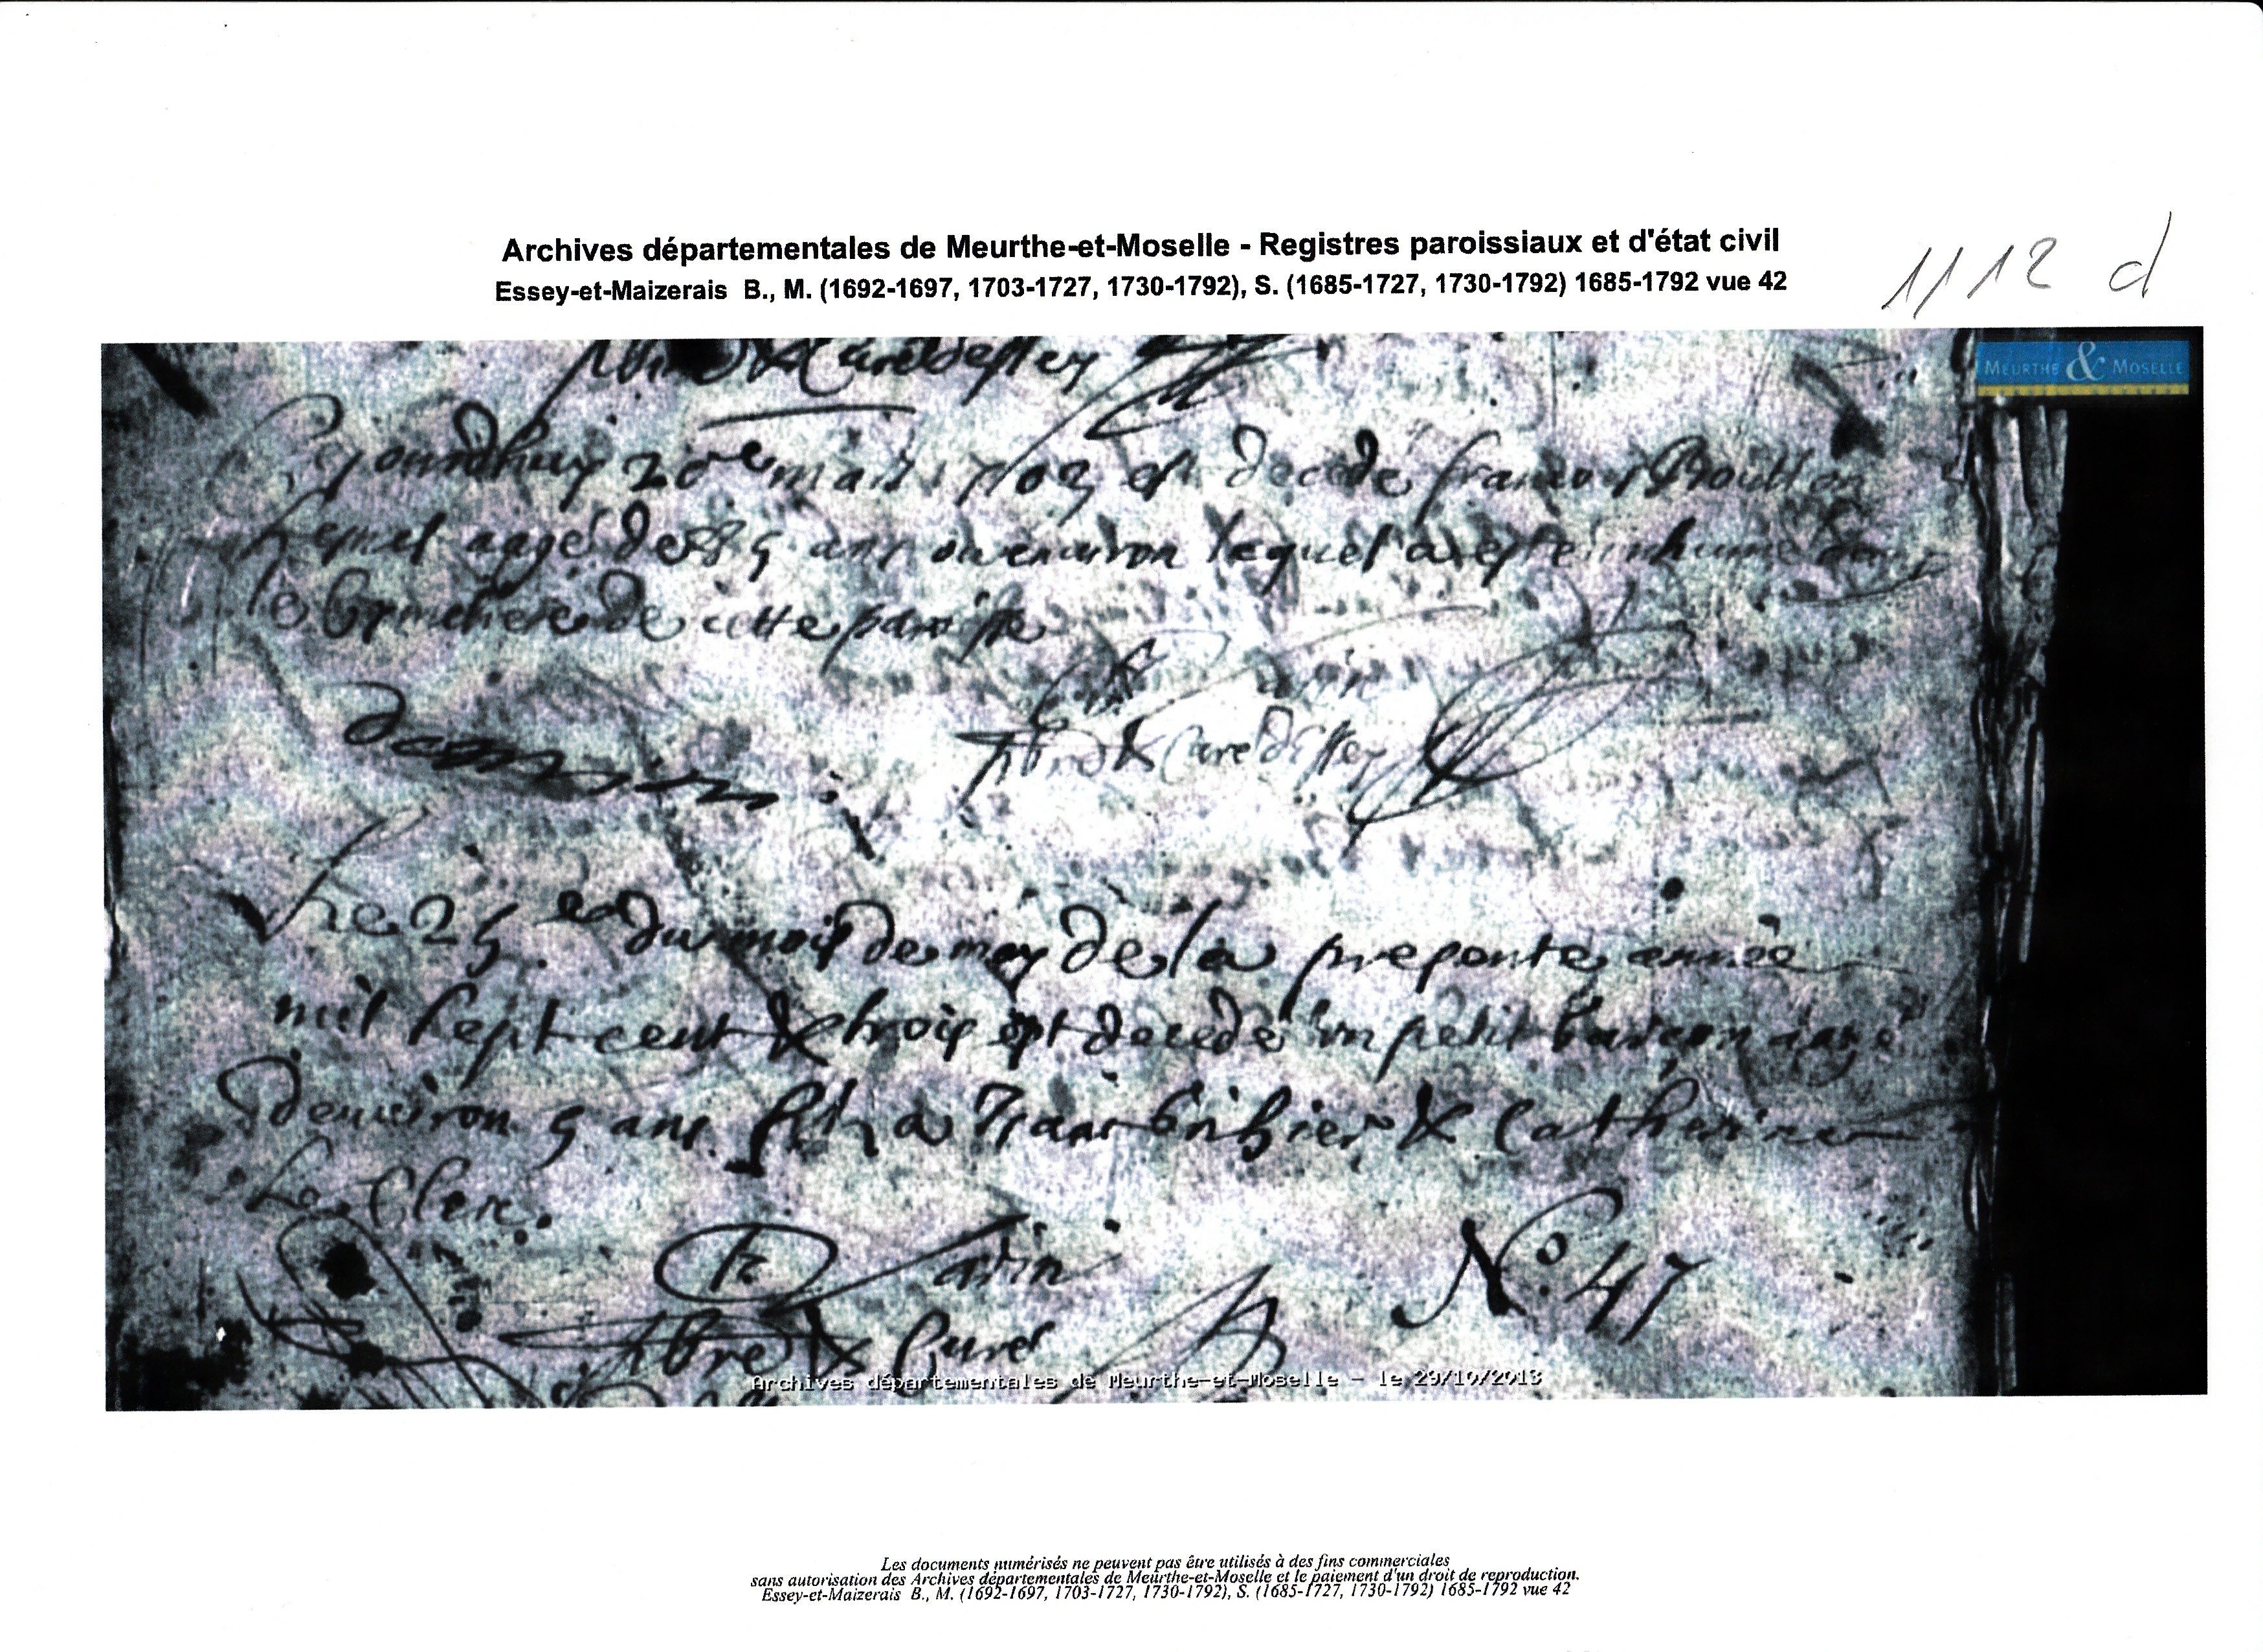 Archives départementales de Meurthe-et-Moselle - Registres paroissiaux et d'état civil
Essey-et-Maizerais B., M. (1692-1697, 1703-1727, 1730-1792), S. (1685-1727, 1730-1792) 1685-1792 vue 42
1112 d
MEURTHE & MOSELLE
& Curé dessey
20e mars 1703 est decedé francois
aagé de ans ou environ lequel a esté inhumé
le de cette paroisse
& Curé dessey
Le 25 du mois de may de la presente année
mil sept cent & trois est decedé un petit garcon aagé
denviron 5 ans fils a & Catherine
Le Clerc.
N° 47
& Curé
Archives départementales de Meurthe-et-Moselle - le 29/10/2013
Les documents numérisés ne peuvent pas être utilisés à des fins commerciales
sans autorisation des Archives départementales de Meurthe-et-Moselle et le paiement d'un droit de reproduction.
Essey-et-Maizerais B., M. (1692-1697, 1703-1727, 1730-1792), S. (1685-1727, 1730-1792) 1685-1792 vue 42